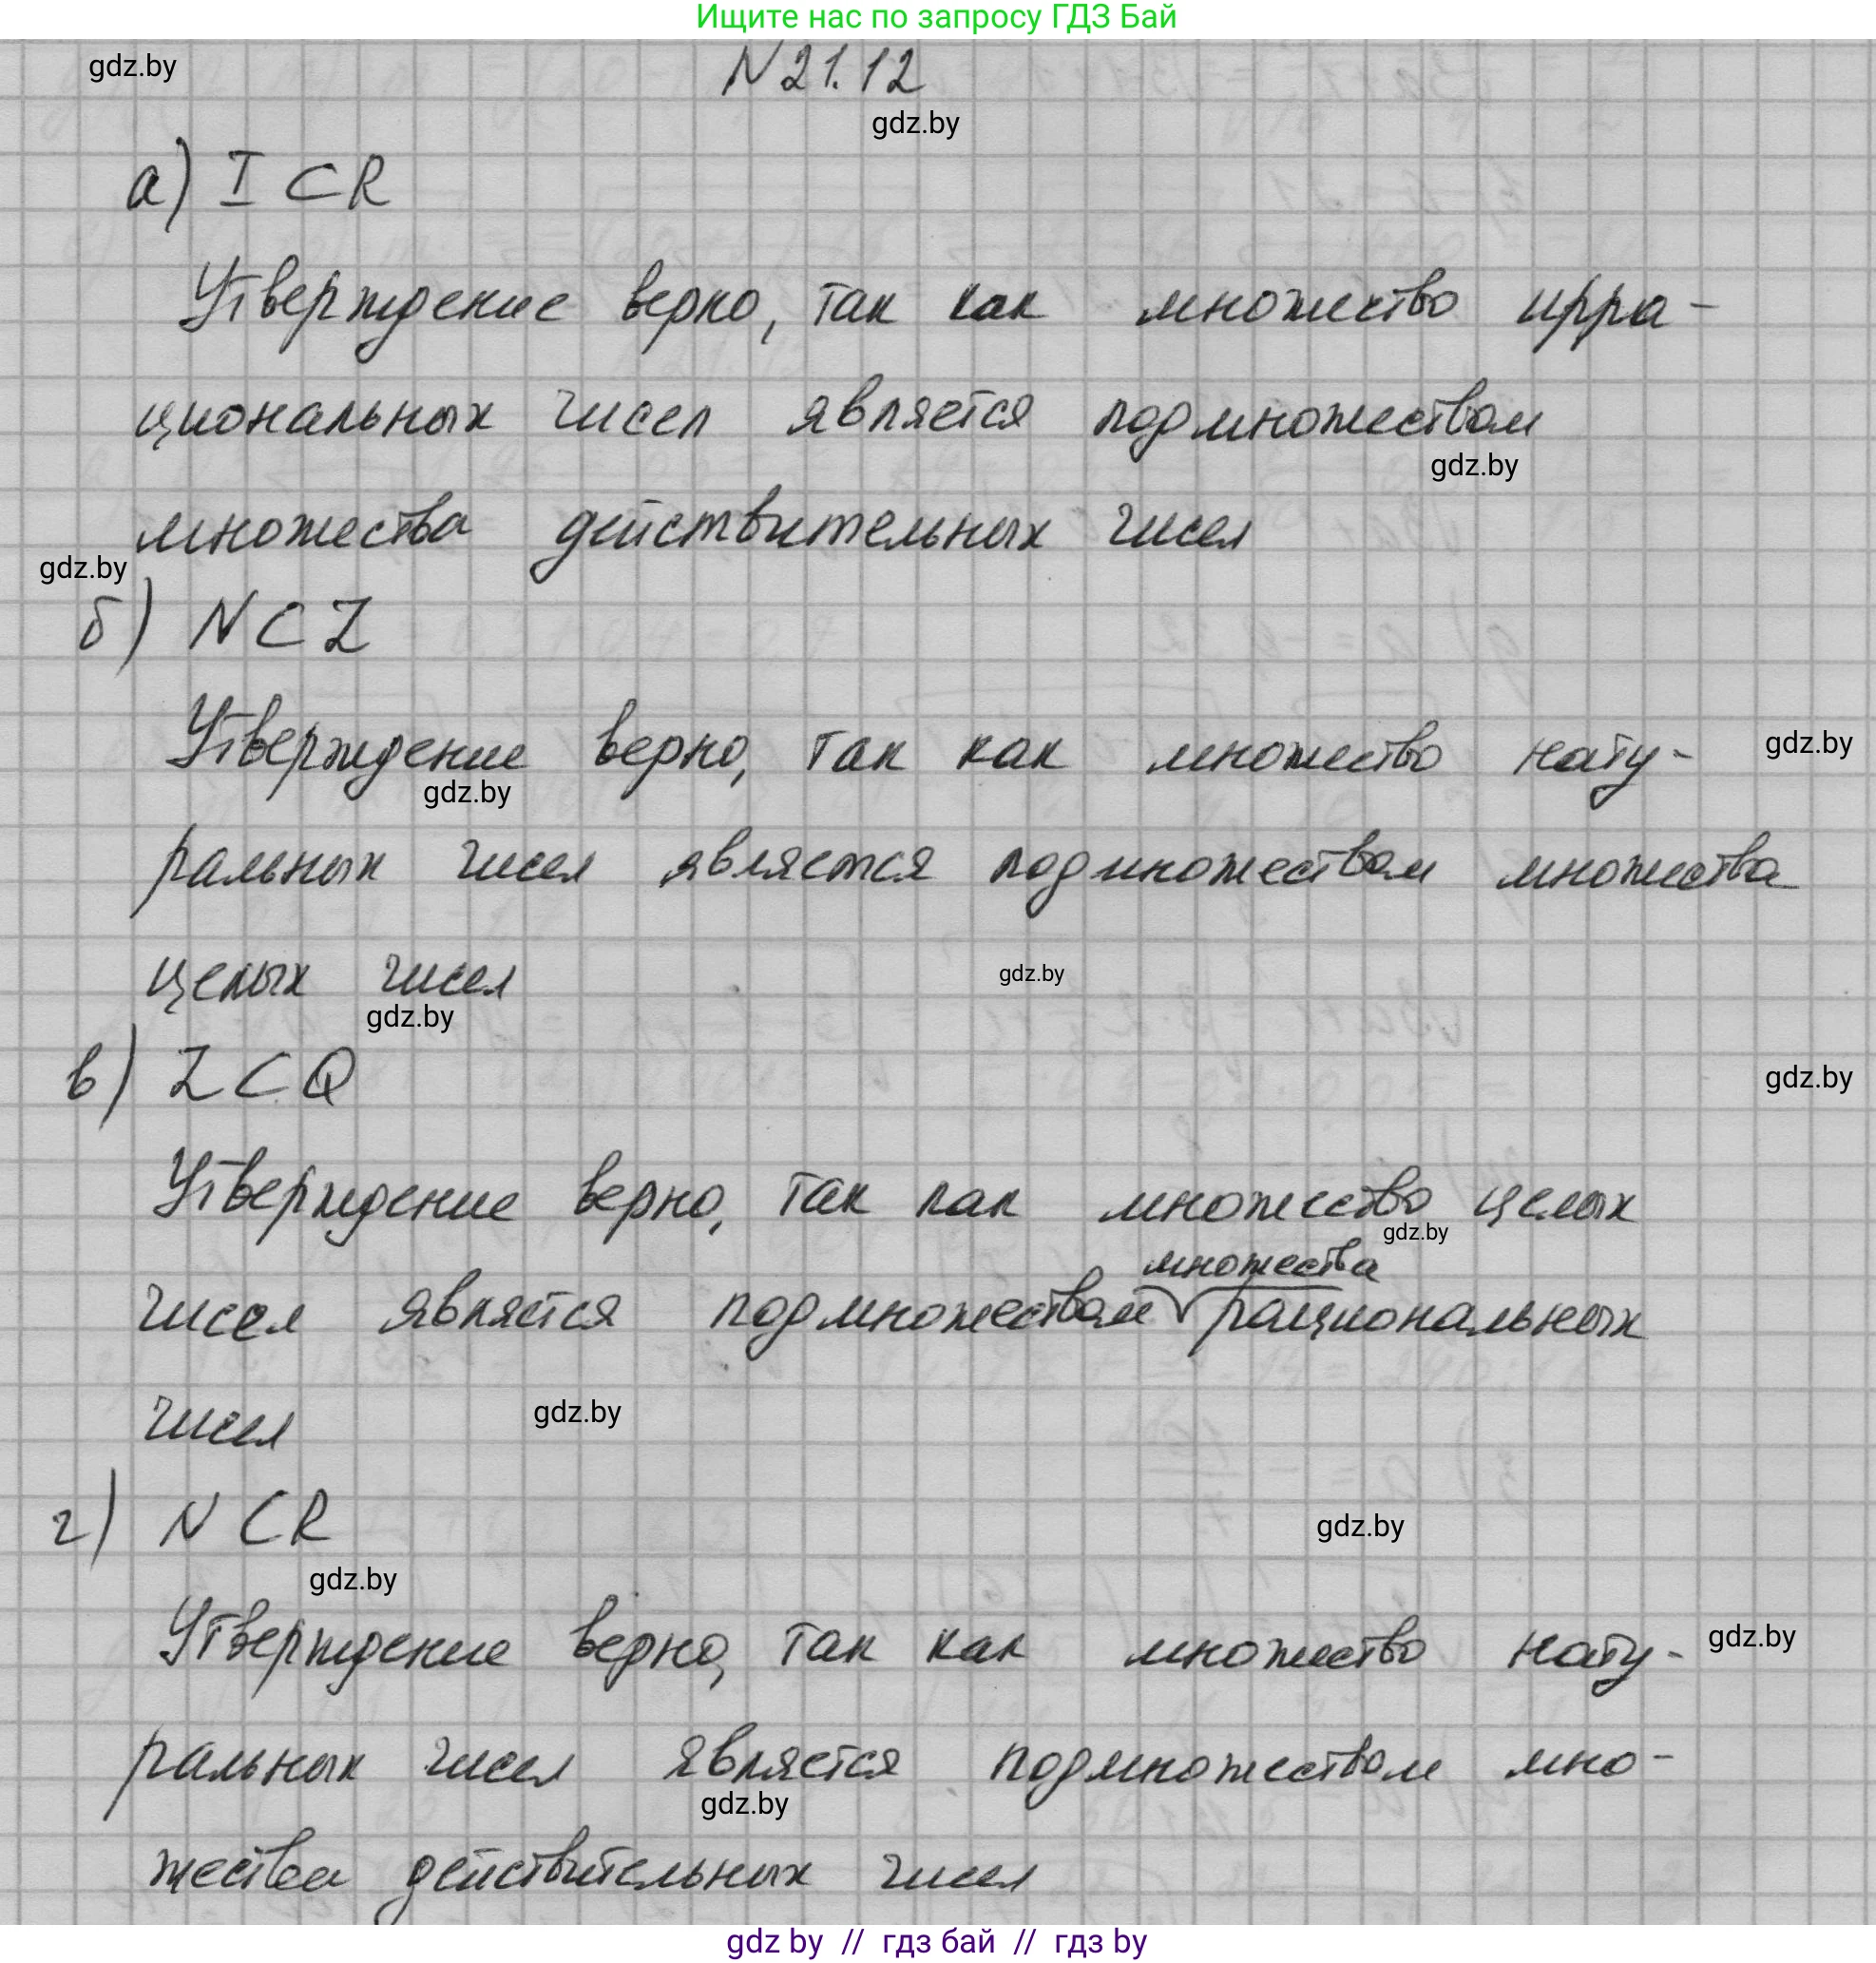 Ищите нас по запросу ГДЗ Бай
gdz.by
N 21.12
gdz.by
а) I ⊂ R
Утверждение верно, так как множество ирра-
циональных чисел является подмножеством
gdz.by
множества действительных чисел
gdz.by
б) N ⊂ Z
Утверждение верно, так как множество нату-
gdz.by
gdz.by
ральных чисел является подмножеством множества
целых чисел
gdz.by
gdz.by
в) Z ⊂ Q
gdz.by
Утверждение верно, так как множество целых
gdz.by
множества
чисел является подмножеством рациональных
чисел
gdz.by
г) N ⊂ R
gdz.by
gdz.by
Утверждение верно, так как множество нату-
gdz.by
ральных чисел является подмножеством мно-
gdz.by
жества действительных чисел
gdz by // гдз бай // гдз by